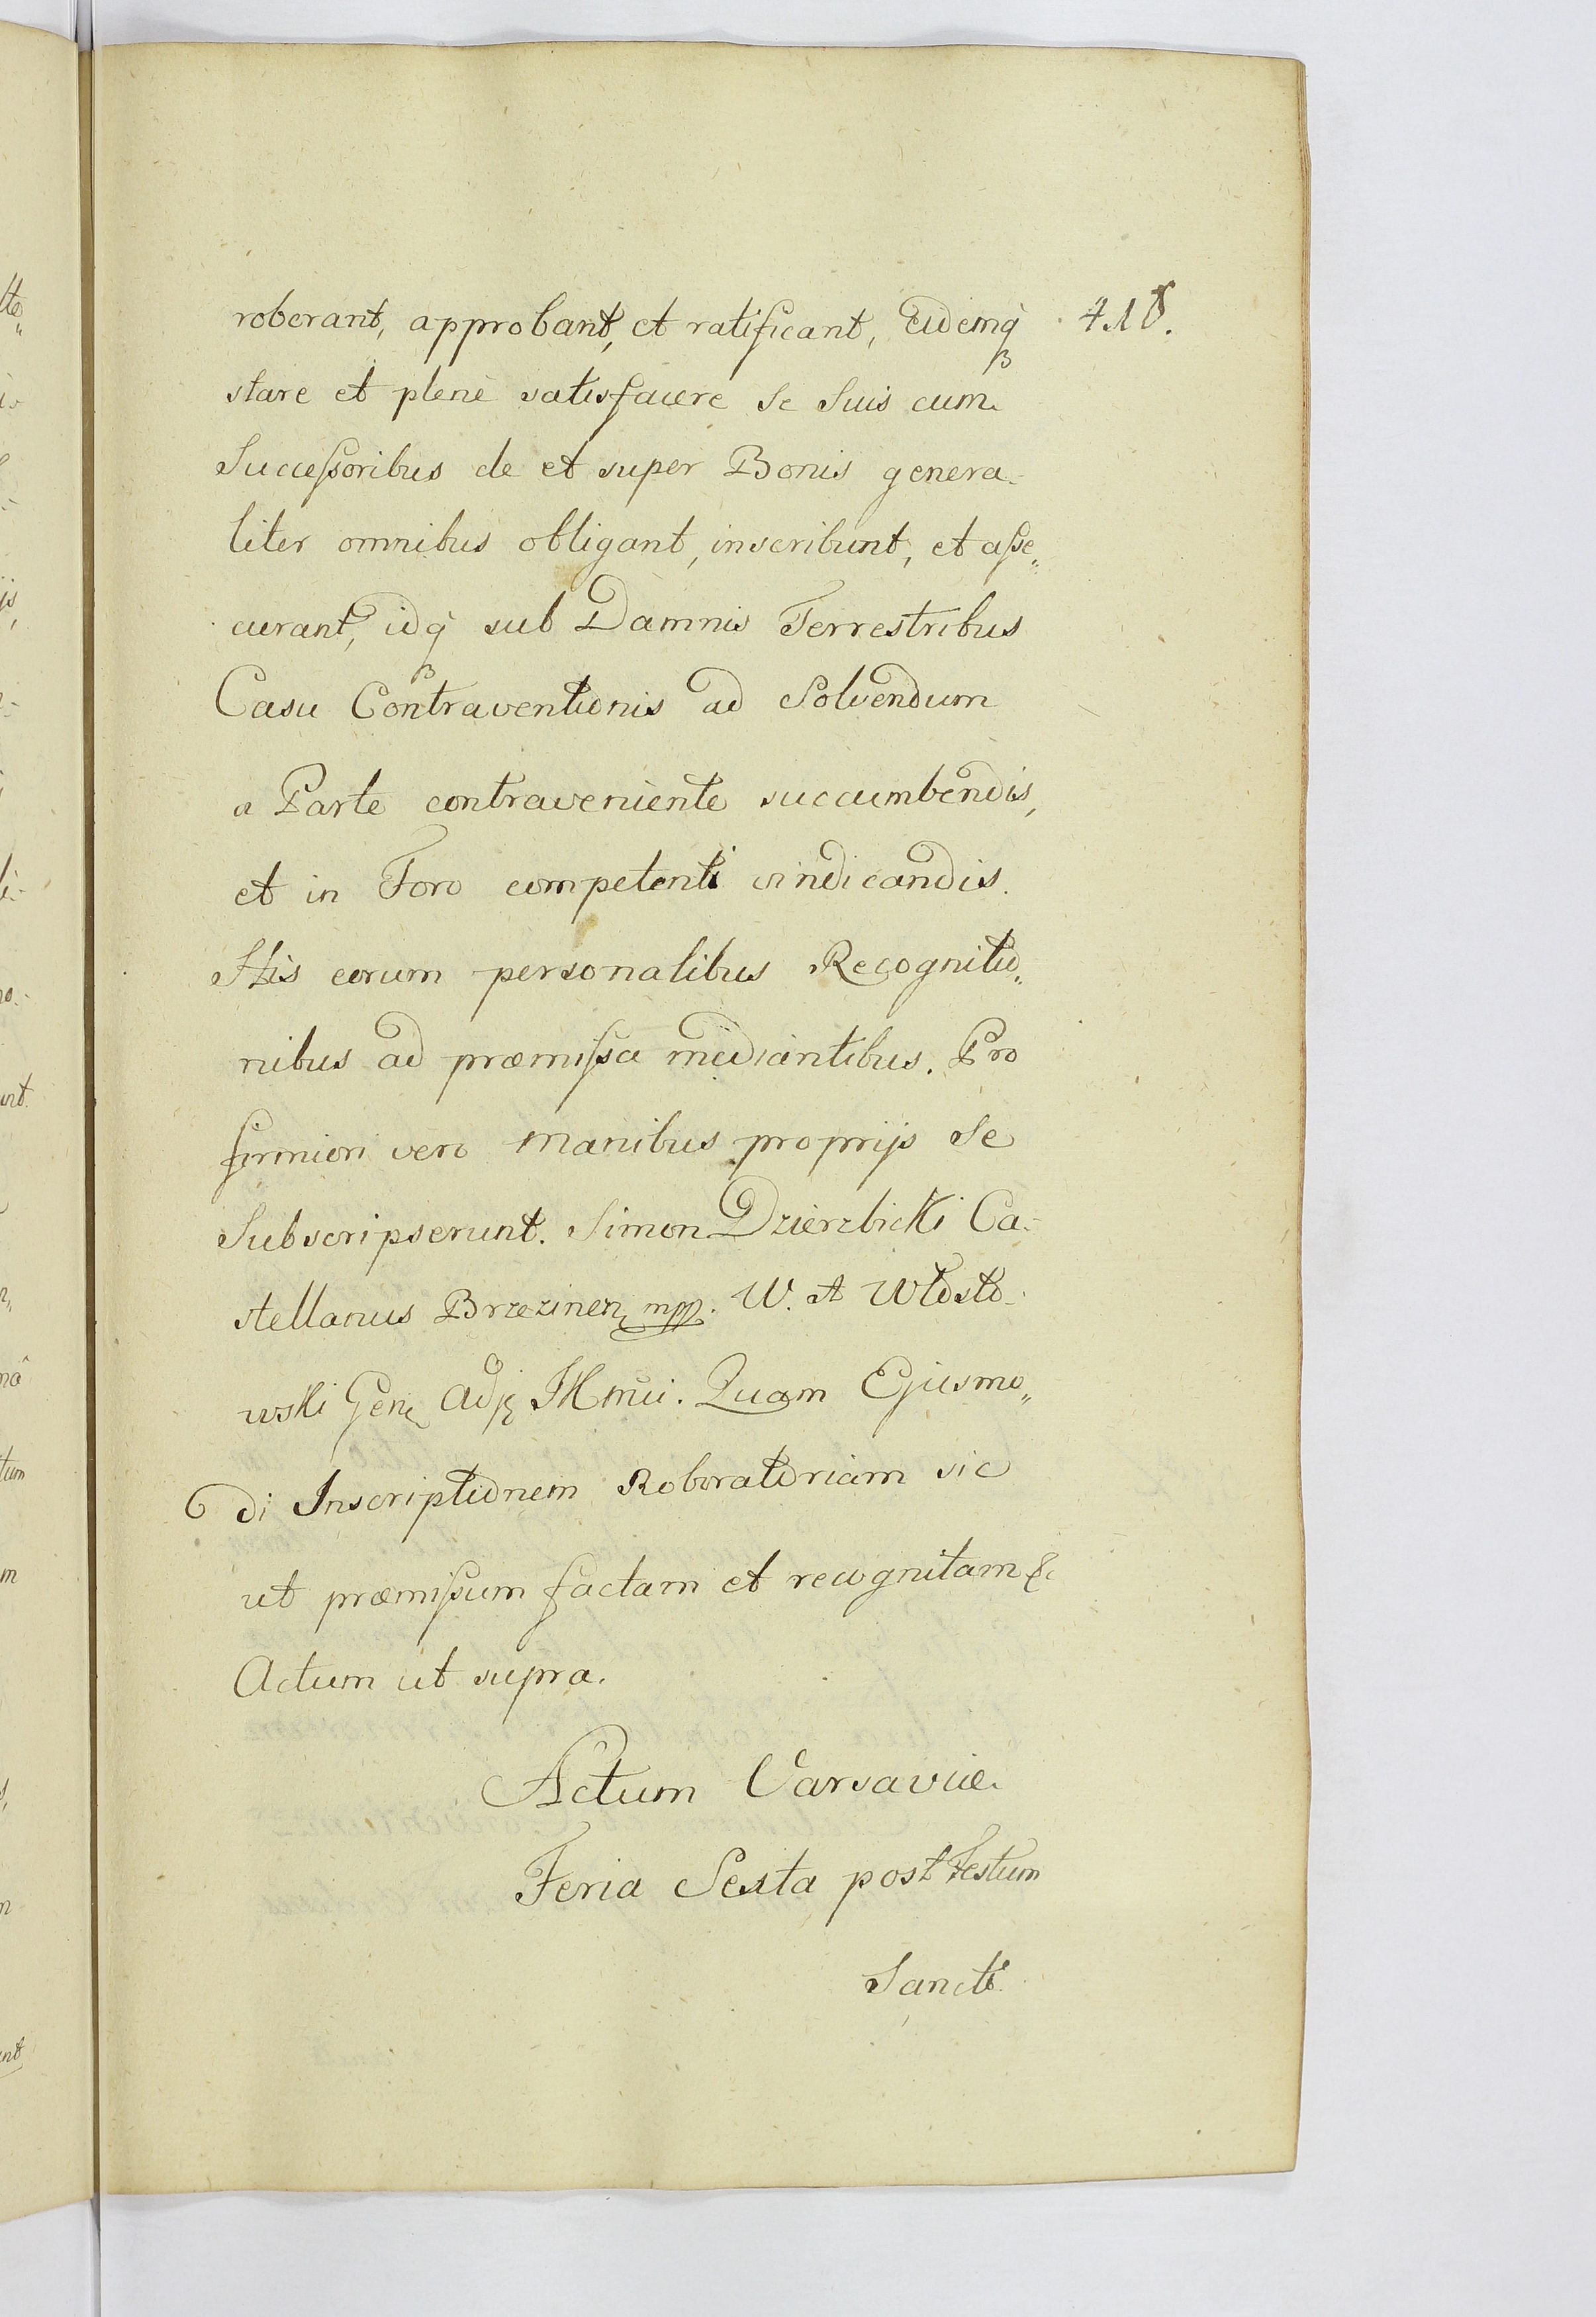 roborant, approbant, et ratificant, Eidemq́ꝫ 418.
stare et plenè satisfacere se suis cum
Succeſsoribus de et super Bonis genera-
liter omnibus obligant, inscribunt, et aſse„
curant, idq́ꝫ sub Damnis Terrestribus
Casu Contraventionis ad Solvendum
a Parte contraveniente succumbendis,
et in Foro competenti vindicandis.
His eorum personalibus Recognitio„
nibus ad præmiſsa mediantibus. Pro
firmiori vero manibus proprijs se
Subscripserunt. Simon Dzierzbicki Ca-
stellanus Brzezinen mpp. W. A Włosto-
wski Gen Adj
Quam Ejusmo„
di Inscriptionem Roboratoriam sic
ut præmiſsum factam et recognitam &c
Actum ut supra.
Actum Varsaviæ
Feria Sexta post Festum
Sancti